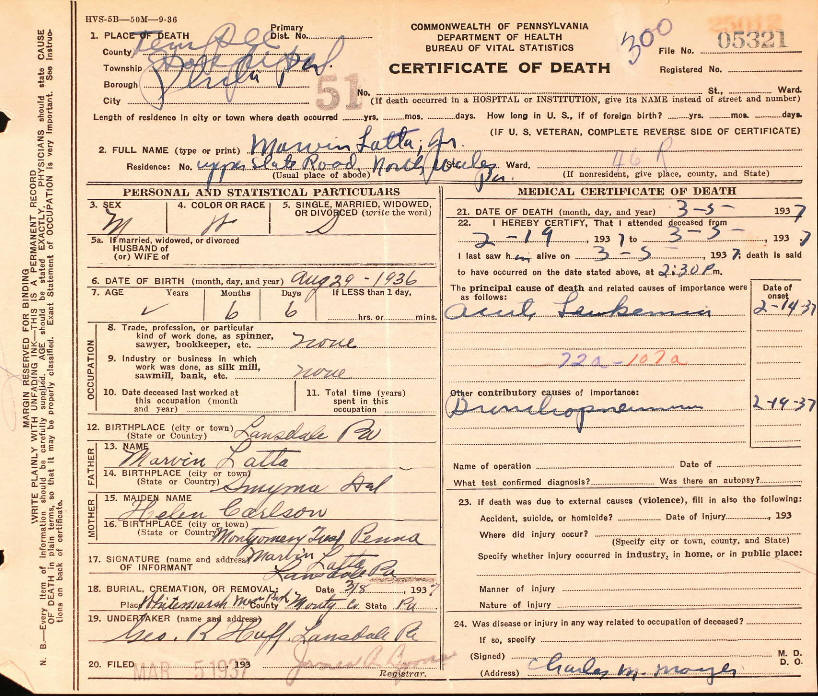 HVS-5B—50M—9-36
1. PLACE OF DEATH
Primary Dist. No.
County
Township
Borough
City
Phila Pa.
51
COMMONWEALTH OF PENNSYLVANIA
DEPARTMENT OF HEALTH
BUREAU OF VITAL STATISTICS
CERTIFICATE OF DEATH
300
File No. 05321
Registered No.
No. St., Ward.
(If death occurred in a HOSPITAL or INSTITUTION, give its NAME instead of street and number)
Length of residence in city or town where death occurred yrs. mos. days. How long in U. S., if of foreign birth? yrs. mos. days.
(IF U. S. VETERAN, COMPLETE REVERSE SIDE OF CERTIFICATE)
2. FULL NAME (type or print) Marvin Latta, Jr.
46 R
Residence: No. upper State Road, North Wales Pa. Ward.
(Usual place of abode) (If nonresident, give place, county, and State)
PERSONAL AND STATISTICAL PARTICULARS
3. SEX M
4. COLOR OR RACE W
5. SINGLE, MARRIED, WIDOWED, OR DIVORCED (write the word) S
5a. If married, widowed, or divorced
HUSBAND of
(or) WIFE of
6. DATE OF BIRTH (month, day, and year) Aug 29 - 1936
7. AGE Years Months Days If LESS than 1 day,
6 6 hrs. or mins.
OCCUPATION
8. Trade, profession, or particular
kind of work done, as spinner,
sawyer, bookkeeper, etc. none
9. Industry or business in which
work was done, as silk mill,
sawmill, bank, etc. none
10. Date deceased last worked at
this occupation (month
and year)
11. Total time (years)
spent in this
occupation
12. BIRTHPLACE (city or town) Lansdale Pa
(State or Country)
FATHER
13. NAME
Marvin Latta
14. BIRTHPLACE (city or town)
(State or Country) Smyrna Del
MOTHER
15. MAIDEN NAME
Helen Carlson
16. BIRTHPLACE (city or town)
(State or Country) Montgomery Twp Penna
17. SIGNATURE (name and address) Marvin Latta
OF INFORMANT Lansdale Pa
18. BURIAL, CREMATION, OR REMOVAL: Date 3/8, 1937
Place Whitemarsh Mem Park County Montg Co. State Pa
19. UNDERTAKER (name and address)
Geo. R Huff. Lansdale Pa
20. FILED MAR 5 1937, 193
Registrar.
MEDICAL CERTIFICATE OF DEATH
21. DATE OF DEATH (month, day, and year) 3-5- 1937
22. I HEREBY CERTIFY, That I attended deceased from
2-19, 1937 to 3-5-, 1937
I last saw him alive on 3-5-, 1937; death is said
to have occurred on the date stated above, at 2:30 P.m.
The principal cause of death and related causes of importance were
as follows:
Date of onset
Acute Leukemia 2-14-37
72a-107a
Other contributory causes of importance:
Bronchopneumonia 2-19-37
Name of operation Date of
What test confirmed diagnosis? Was there an autopsy?
23. If death was due to external causes (violence), fill in also the following:
Accident, suicide, or homicide? Date of injury, 193
Where did injury occur?
(Specify city or town, county, and State)
Specify whether injury occurred in industry, in home, or in public place:
Manner of injury
Nature of injury
24. Was disease or injury in any way related to occupation of deceased?
If so, specify
(Signed) Charles M. Moyer M. D.
D. O.
(Address)
MARGIN RESERVED FOR BINDING
WRITE PLAINLY WITH UNFADING INK—THIS IS A PERMANENT RECORD
N. B.—Every item of information should be carefully supplied. AGE should be stated EXACTLY. PHYSICIANS should state CAUSE
OF DEATH in plain terms, so that it may be properly classified. Exact Statement of OCCUPATION is very important. See Instruc-
tions on back of certificate.